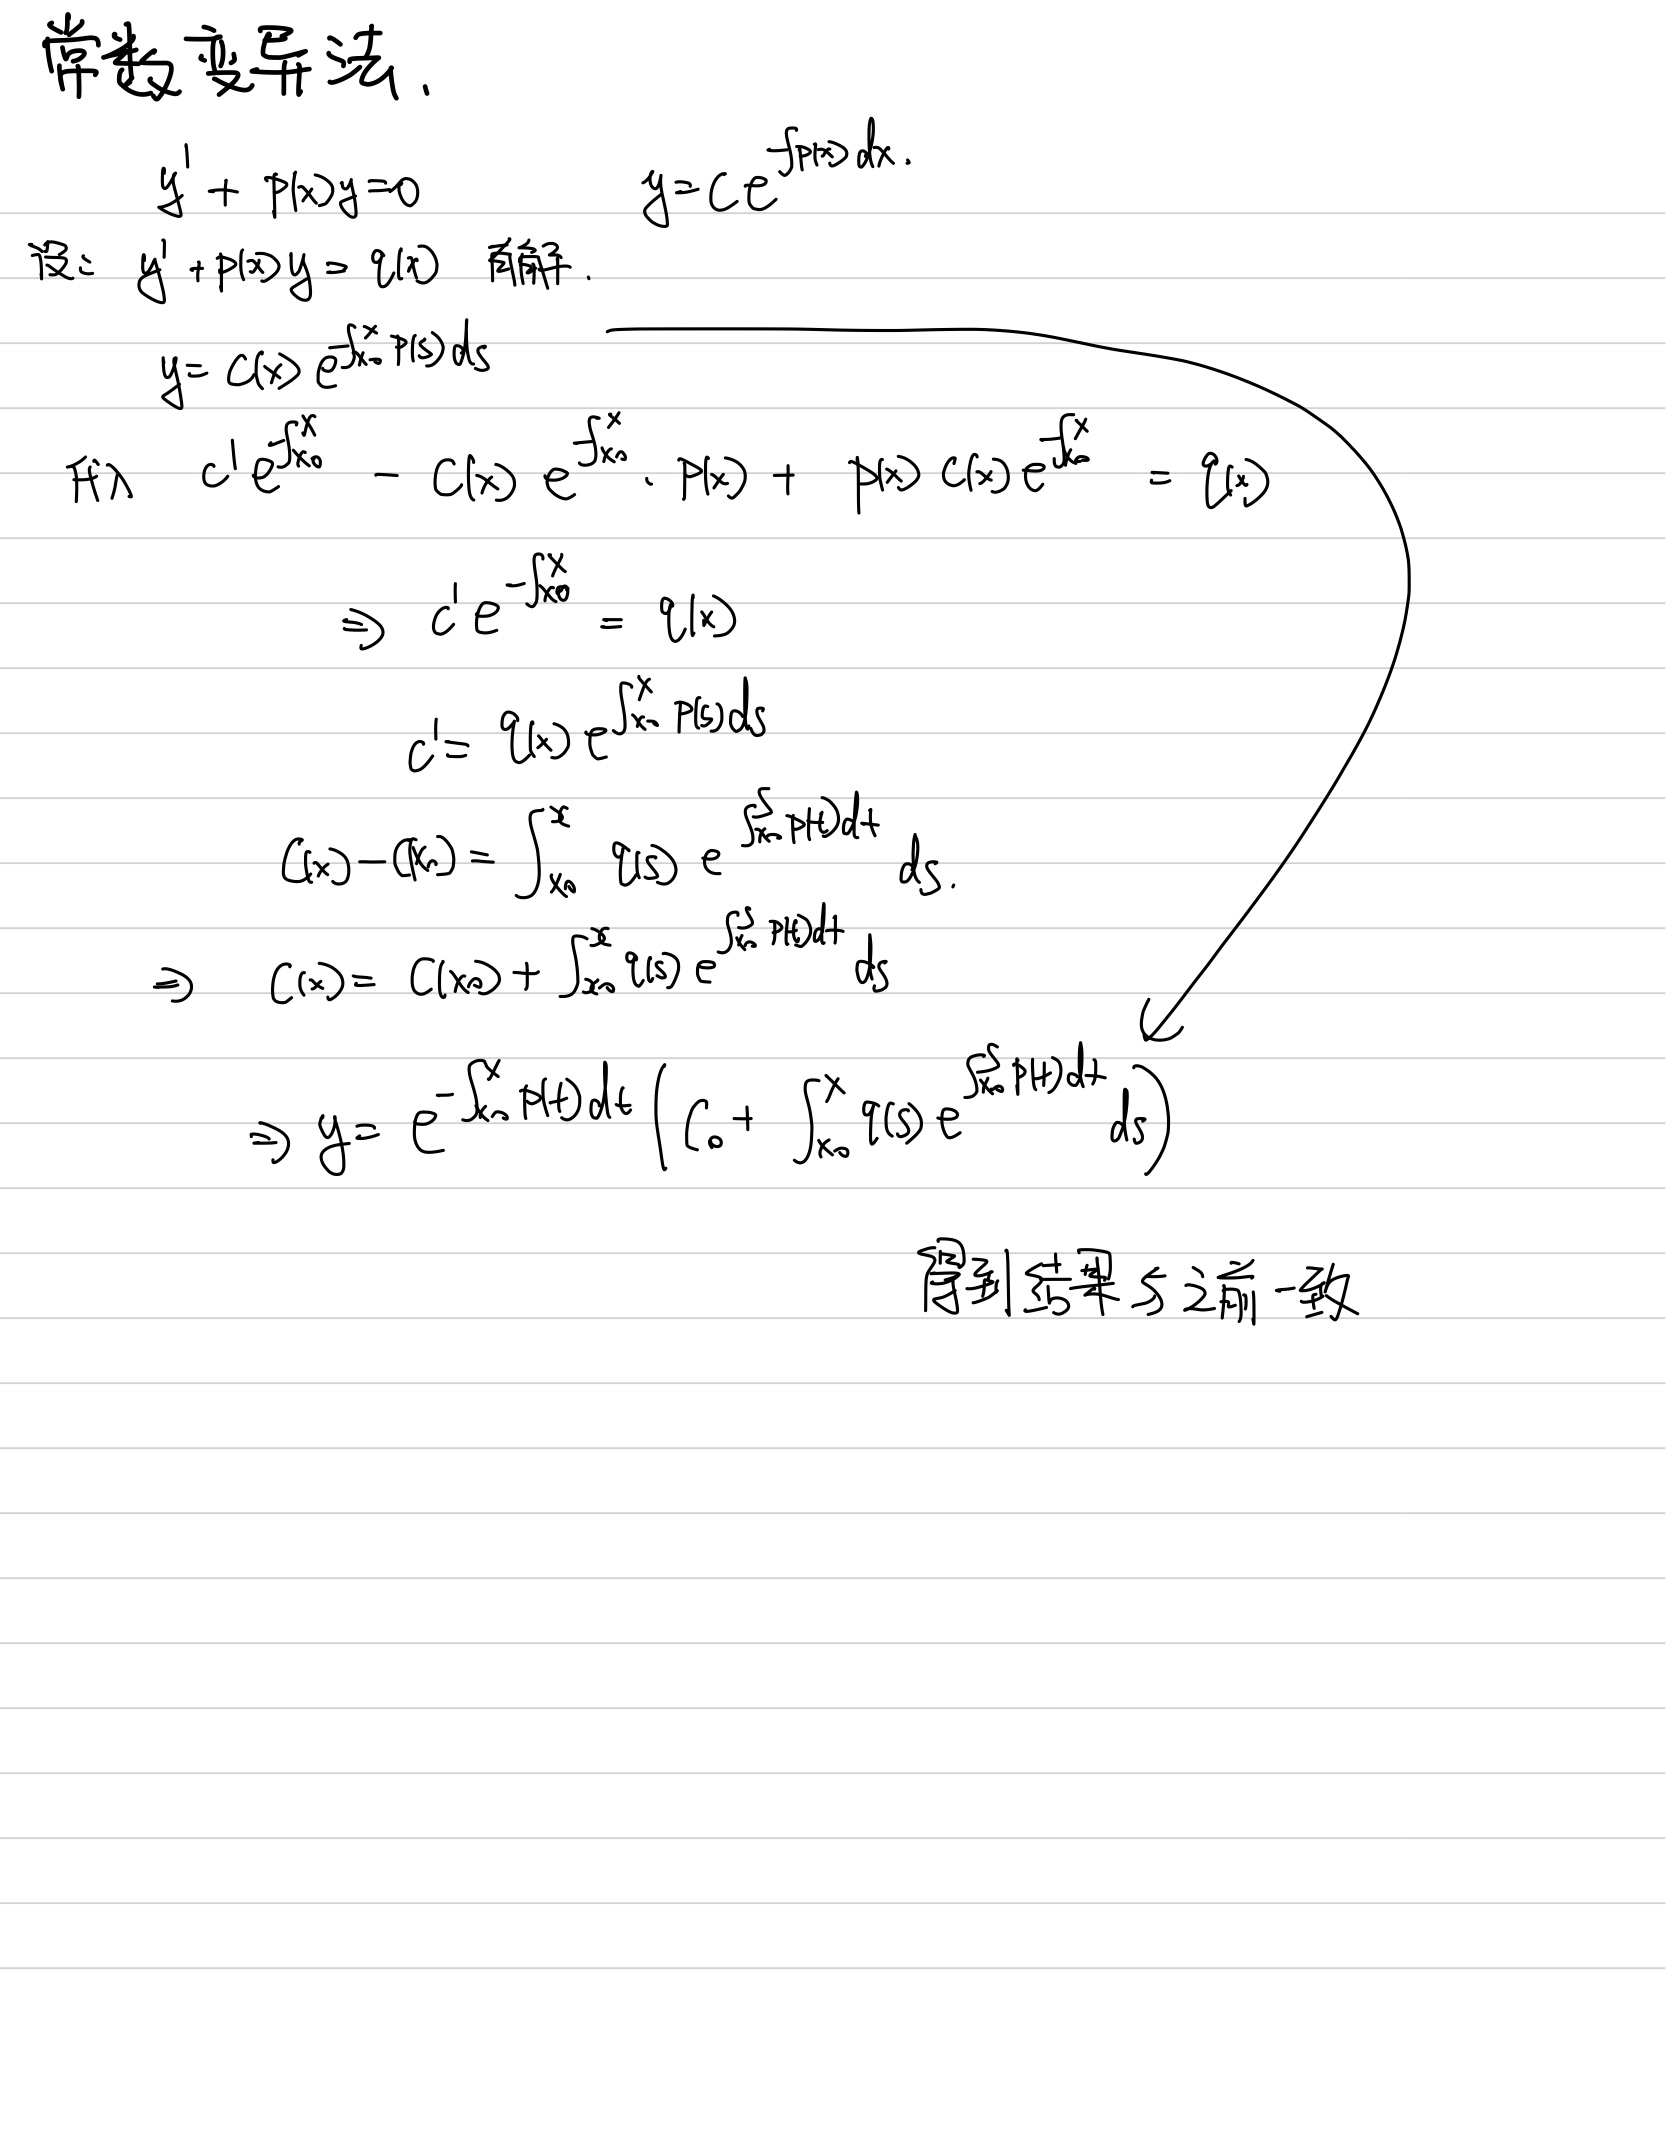 常数变异法.
y' + p(x)y=0 y=Ce^{-∫p(x)dx}.
设: y'+p(x)y = q(x) 有解.
y= C(x) e^{-∫_{x₀}^{x} p(s)ds}
代入 c' e^{-∫_{x₀}^{x}} - C(x) e^{-∫_{x₀}^{x}} · p(x) + p(x) C(x) e^{-∫_{x₀}^{x}} = q(x)
⇒ c' e^{-∫_{x₀}^{x}} = q(x)
c' = q(x) e^{∫_{x₀}^{x} p(s)ds}
C(x) - C(x₀) = ∫_{x₀}^{x} q(s) e^{∫_{x₀}^{s} p(t)dt} ds.
⇒ C(x) = C(x₀) + ∫_{x₀}^{x} q(s) e^{∫_{x₀}^{s} p(t)dt} ds
⇒ y= e^{-∫_{x₀}^{x} p(t)dt} (C₀ + ∫_{x₀}^{x} q(s) e^{∫_{x₀}^{s} p(t)dt} ds)
得到结果与之前一致